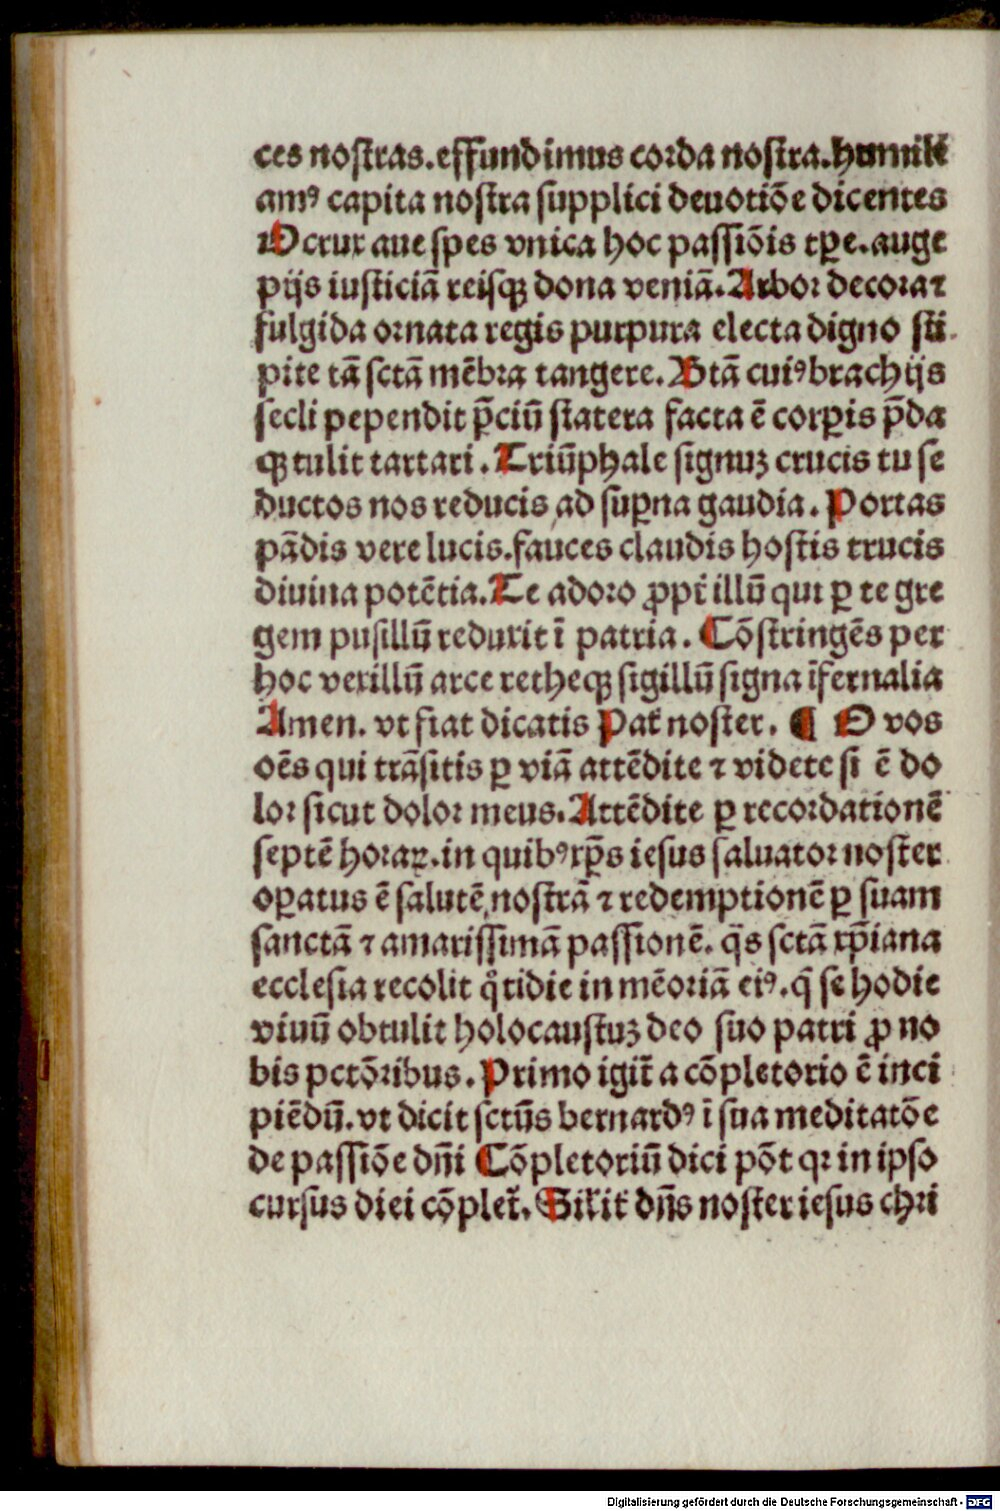 ces nostras.effundimus corda nostra.humili
amꝰ capita nostra supplici deuotiōe dicentes
O crux aue spes vnica hoc passiōis tꝑe.auge
pijs iusticiā reisqꝫ dona veniā.Arbor decora ⁊
fulgida ornata regis purpura electa digno sti
pite tā sctā mēbra tangere.Btā cuiꝰ brachijs
secli pependit p̄ciū statera facta ē corꝑis p̄da
qꝫ tulit tartari.Triūphale signuꝫ crucis tu se
ductos nos reducis ad suꝑna gaudia.Portas
pādis vere lucis.fauces claudis hostis trucis
diuina potētia.Te adoro ꝓpt̄ illū qui ꝑ te gre
gem pusillū reduxit ī patria.Cōstringēs per
hoc vexillū arce retheqꝫ sigillū signa īfernalia
Amen. vt fiat dicatis Pat̄ noster. ¶ O vos
oēs qui trāsitis ꝑ viā attēdite ⁊ videte si ē do
lor sicut dolor meus.Attēdite ꝑ recordationē
septē horaꝝ.in quibꝰ xp̄s iesus saluator noster
oꝑatus ē salutē nostrā ⁊ redemptionē ꝑ suam
sanctā ⁊ amarissimā passionē. q̄s sctā xp̄iana
ecclesia recolit qͦtidie in mēoriā eiꝰ.q̄ se hodie
viuū obtulit holocaustuꝫ deo suo patri ꝓ no
bis pctōribus.Primo igit̄ a cōpletorio ē inci
piēdū.vt dicit sctūs bernardꝰ ī sua meditatōe
de passiōe dn̄i Cōpletoriū dici pōt qꝛ in ipso
cursus diei cōplet̄.Silit̄ dn̄s noster iesus chri
Digitalisierung gefördert durch die Deutsche Forschungsgemeinschaft - DFG